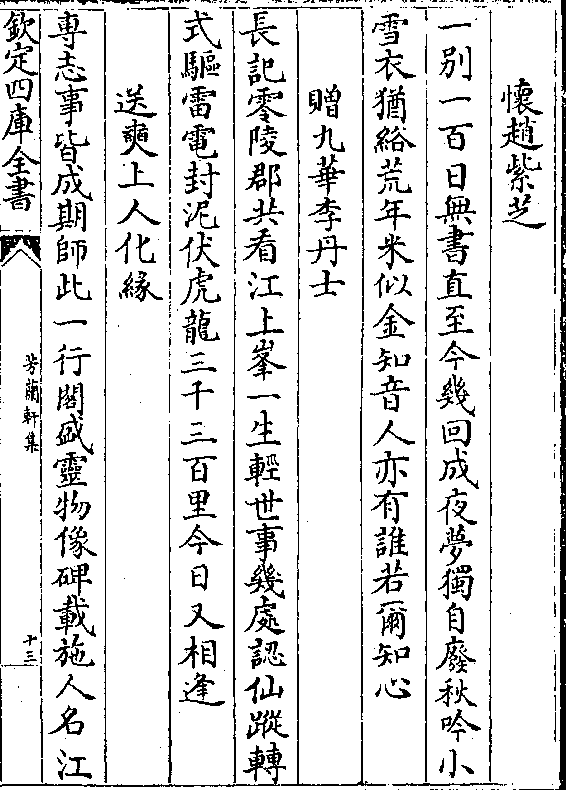 懷趙紫芝
一别一百日無書直至今幾回成夜夢獨自廢秋吟小
雪衣猶綌荒年米似金知音人亦有誰若爾知心
贈九華李丹士
長記零陵郡共看江上峯一生輕世事幾處認仙蹤轉
式驅雷電封泥伏虎龍三千三百里今日又相逢
送奭上人化緣
專志事皆成期師此一行閣盛靈物像碑載施人名江
欽定四庫全書
芳蘭軒集
十三